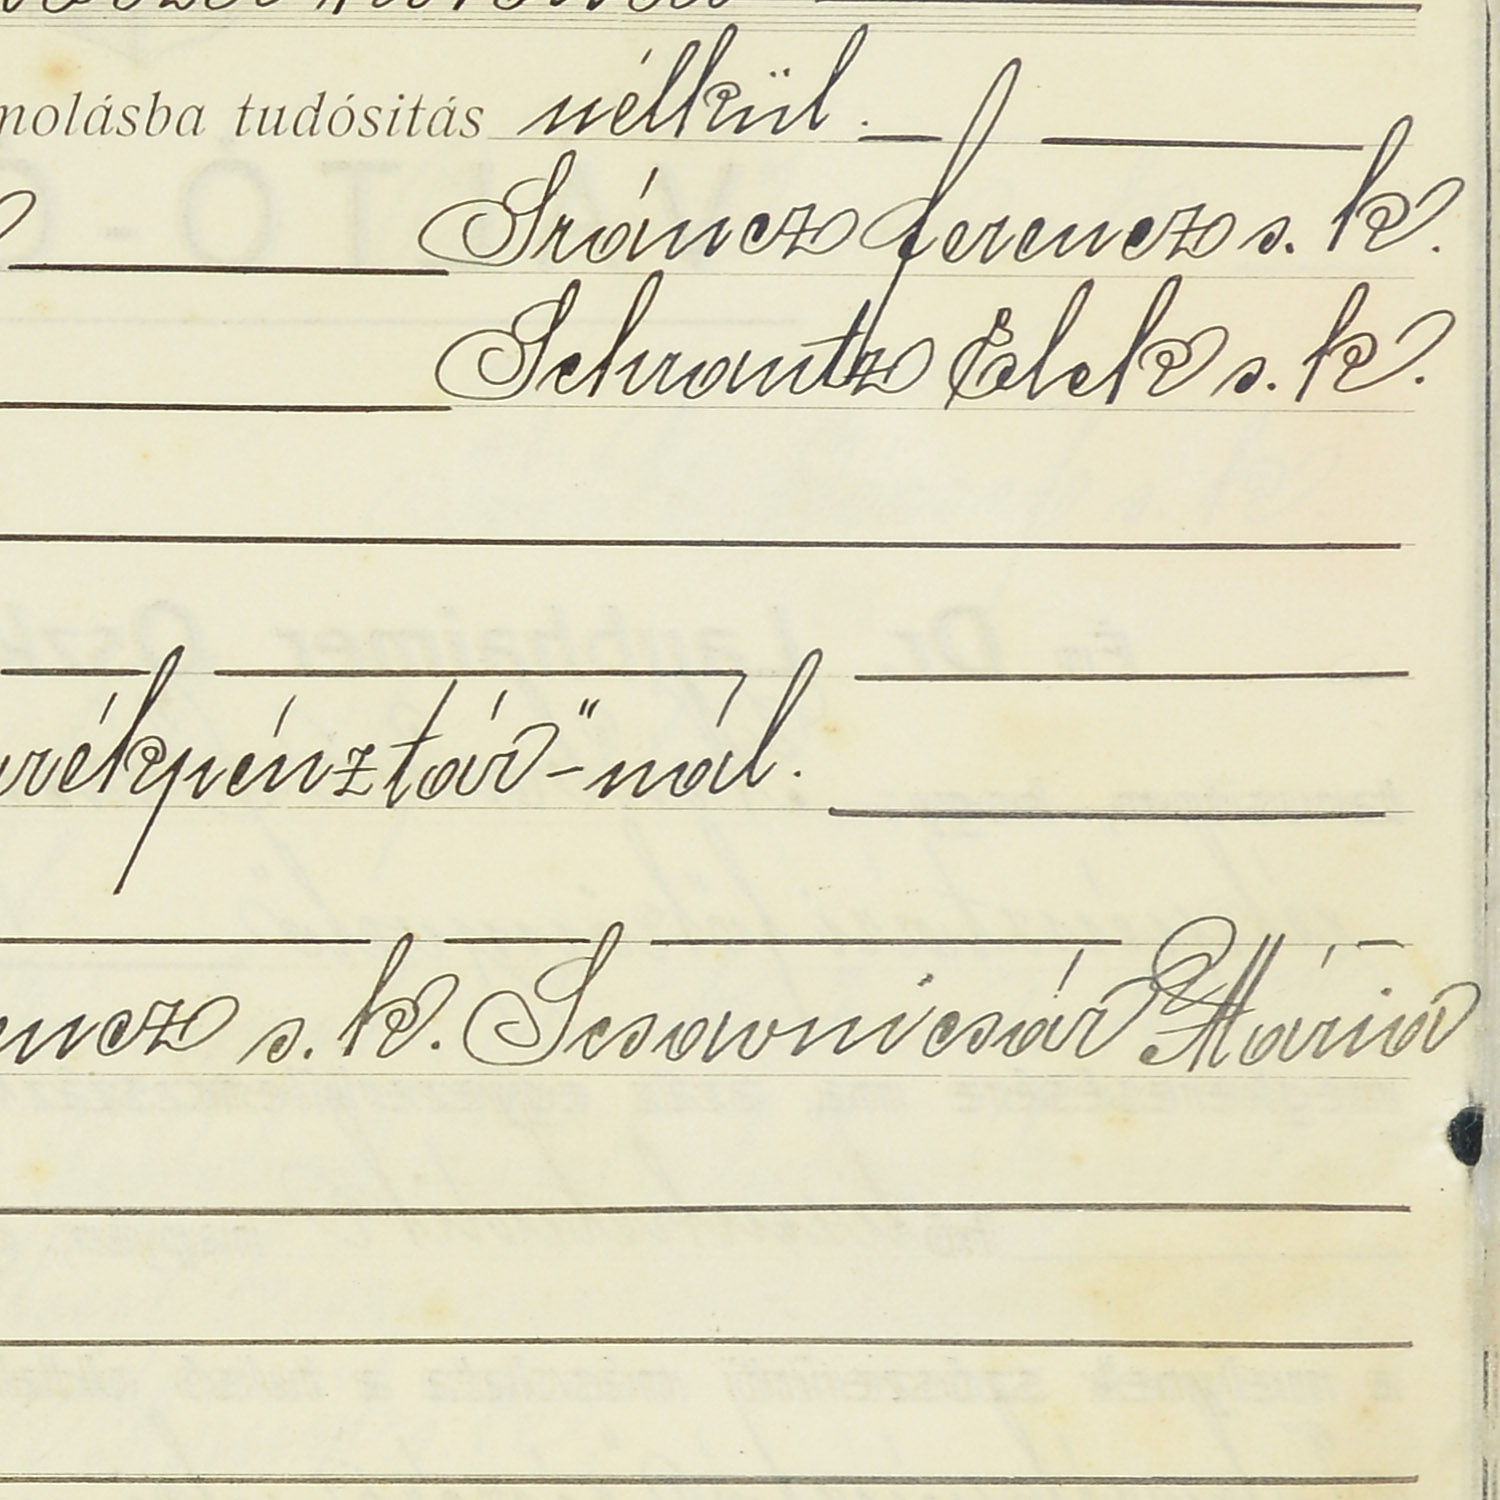 molásba tudósitás nélkül.
Sráncz ferencz s. k.
Schrantz Elek s. k.
rékpénztár"-nál.
encz s. k. Scsavnicsár Mária